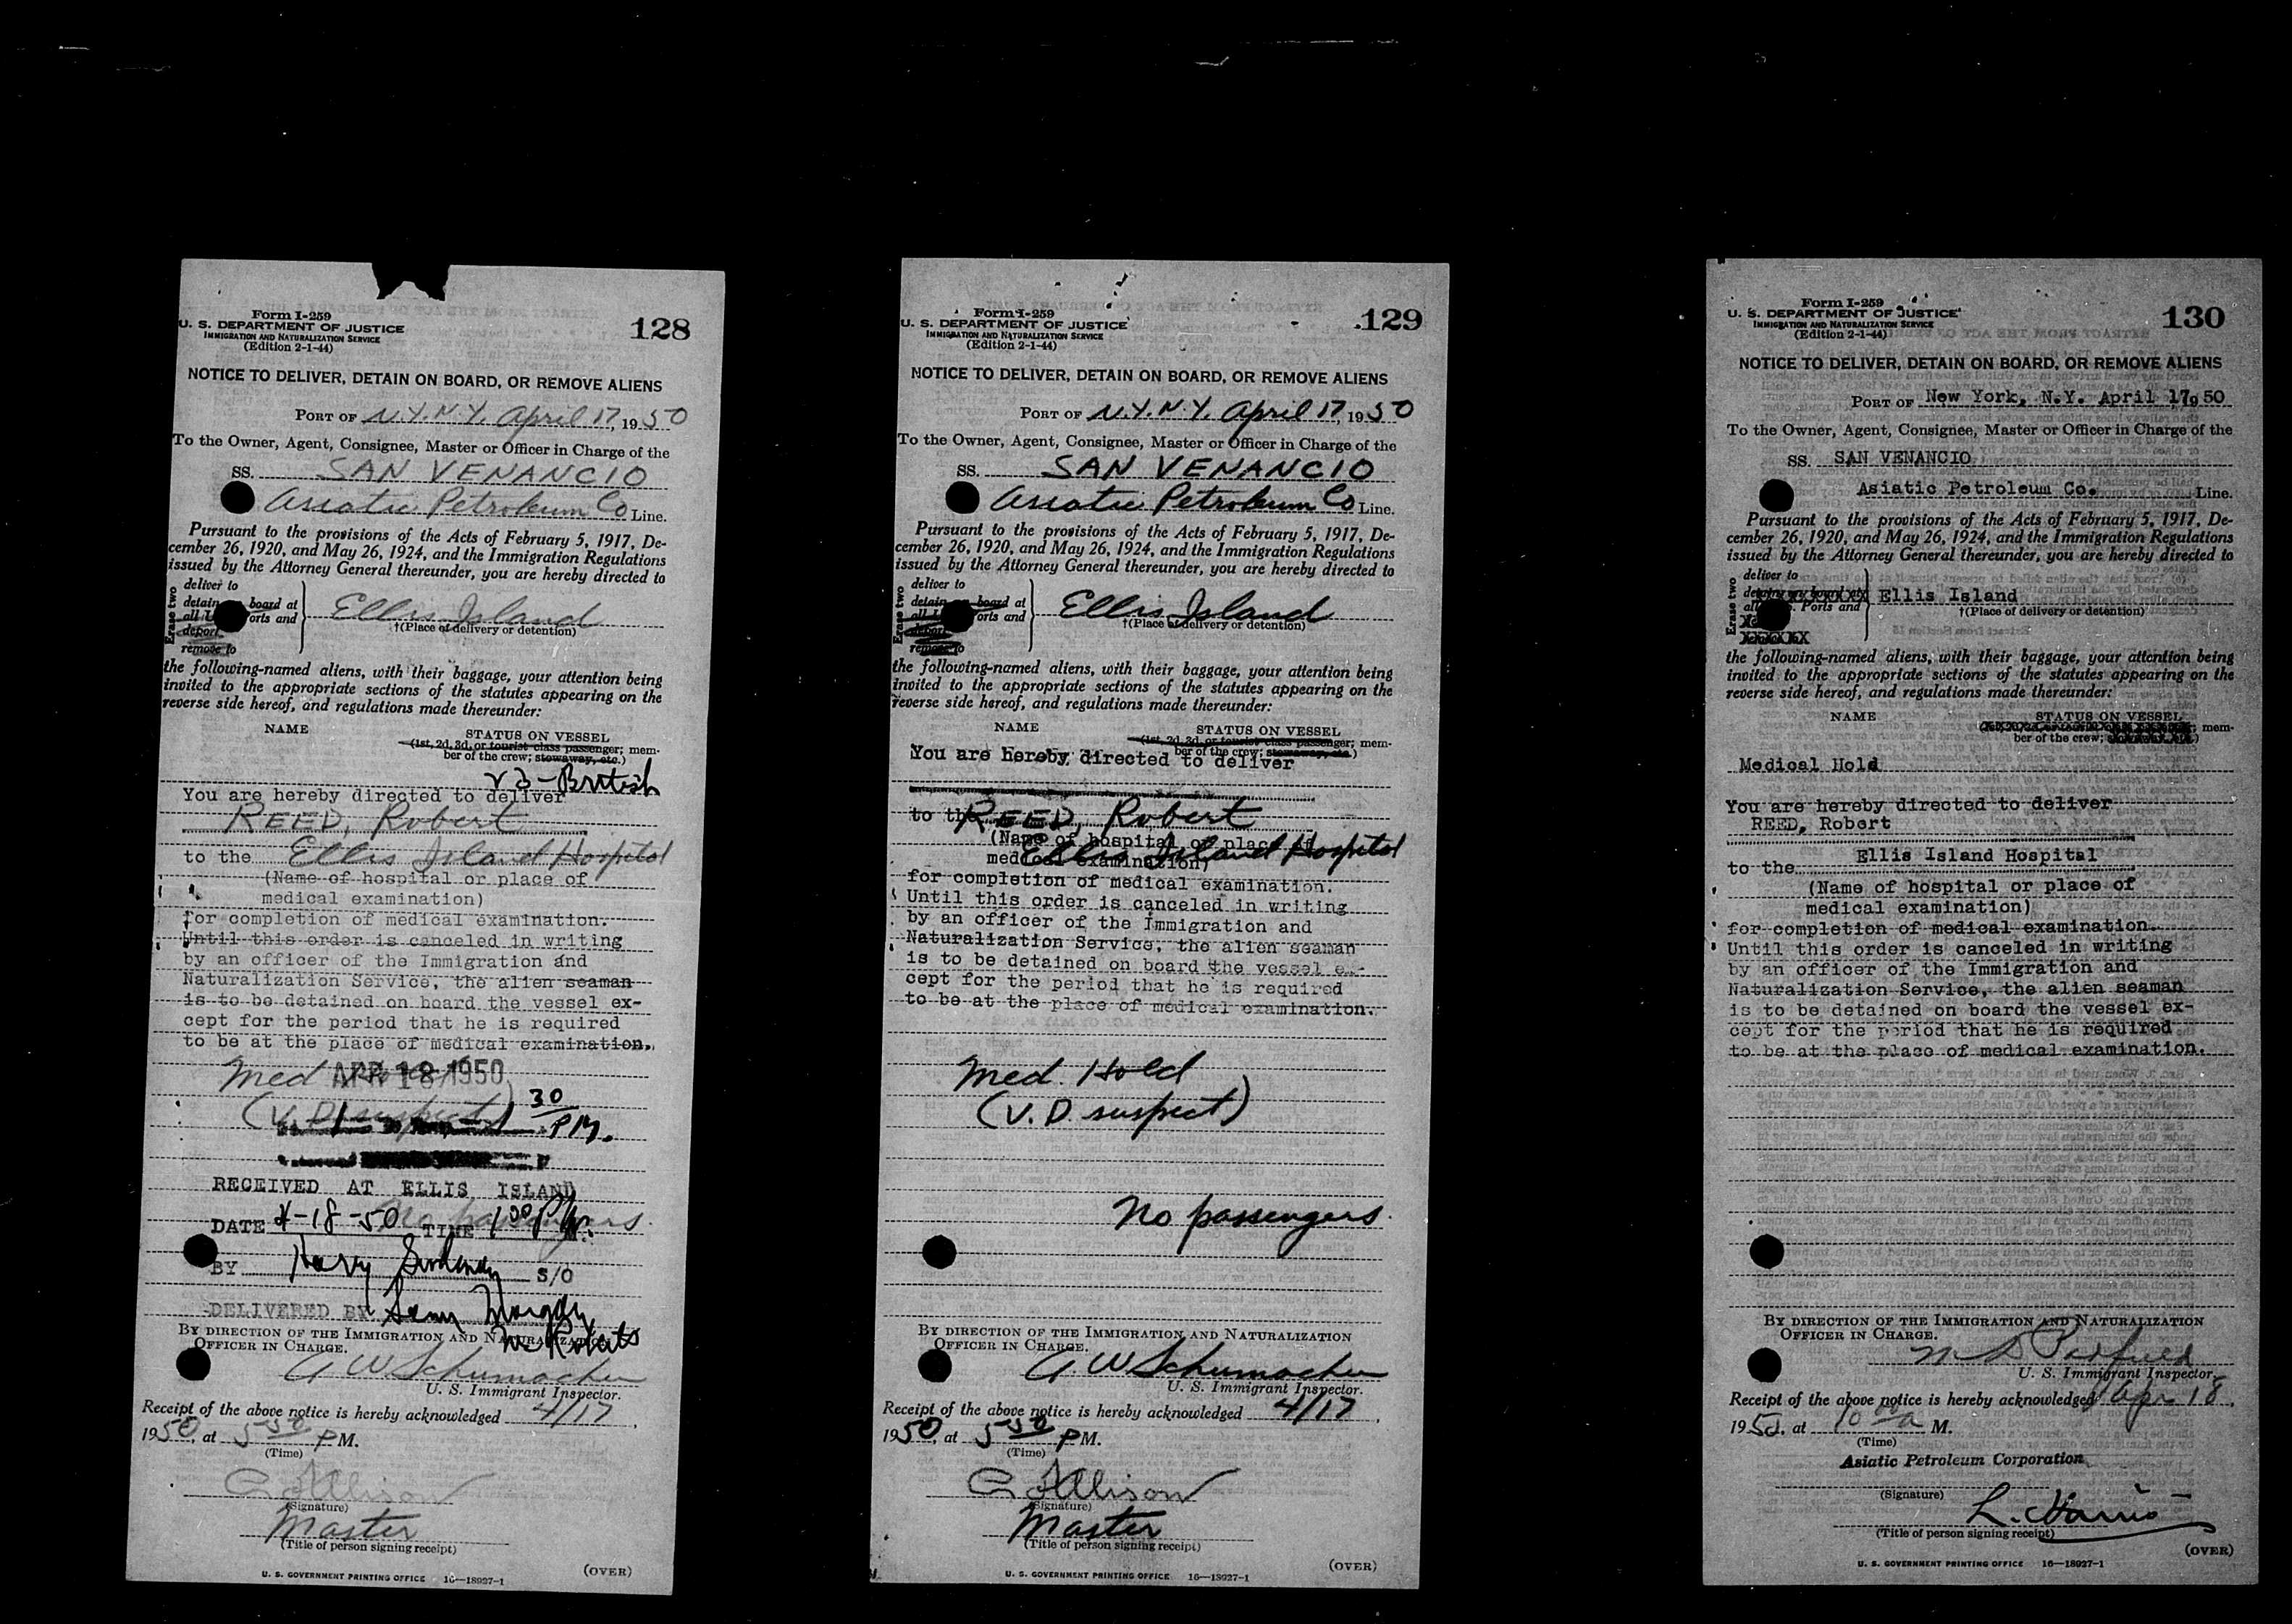 Form I-259
U. S. DEPARTMENT OF JUSTICE
IMMIGRATION AND NATURALIZATION SERVICE
(Edition 2-1-44)
128
NOTICE TO DELIVER, DETAIN ON BOARD, OR REMOVE ALIENS
PORT OF N.Y.N.Y. April 17, 1950
To the Owner, Agent, Consignee, Master or Officer in Charge of the
SS. SAN VENANCIO
Asiatic Petroleum Co Line.
Pursuant to the provisions of the Acts of February 5, 1917, De-
cember 26, 1920, and May 26, 1924, and the Immigration Regulations
issued by the Attorney General thereunder, you are hereby directed to
Erase two
deliver to
detain board at
all orts and
deport
remove to
Ellis Island
†(Place of delivery or detention)
the following-named aliens, with their baggage, your attention being
invited to the appropriate sections of the statutes appearing on the
reverse side hereof, and regulations made thereunder:
NAME
STATUS ON VESSEL
(1st, 2d, 3d, or tourist class passenger; mem-
ber of the crew; stowaway, etc.)
23-British
You are hereby directed to deliver
REED, Robert
to the Ellis Island Hospital
(Name of hospital or place of
medical examination)
for completion of medical examination.
Until this order is canceled in writing
by an officer of the Immigration and
Naturalization Service, the alien seaman
is to be detained on board the vessel ex-
cept for the period that he is required
to be at the place of medical examination.
Med Hold
APR 18 1950
(V.D. suspect)
1 30 PM.
RECEIVED AT ELLIS ISLAND
No passengers.
DATE 4-18-50 TIME 1 00 P M.
BY Harry S/O
DELIVERED BY
BY DIRECTION OF THE IMMIGRATION AND NATURALIZATION
OFFICER IN CHARGE.
A W Schumacher
U. S. Immigrant Inspector.
Receipt of the above notice is hereby acknowledged 4/17,
1950, at 5 50 PM.
(Time)
C Allison
(Signature)
Master
(Title of person signing receipt)
(OVER)
U. S. GOVERNMENT PRINTING OFFICE 16—18927-1
Form I-259
U. S. DEPARTMENT OF JUSTICE
IMMIGRATION AND NATURALIZATION SERVICE
(Edition 2-1-44)
129
NOTICE TO DELIVER, DETAIN ON BOARD, OR REMOVE ALIENS
PORT OF N.Y.N.Y. April 17, 1950
To the Owner, Agent, Consignee, Master or Officer in Charge of the
SS. SAN VENANCIO
Asiatic Petroleum Co Line.
Pursuant to the provisions of the Acts of February 5, 1917, De-
cember 26, 1920, and May 26, 1924, and the Immigration Regulations
issued by the Attorney General thereunder, you are hereby directed to
Erase two
deliver to
detain board at
all orts and
deport
remove to
Ellis Island
†(Place of delivery or detention)
the following-named aliens, with their baggage, your attention being
invited to the appropriate sections of the statutes appearing on the
reverse side hereof, and regulations made thereunder:
NAME
STATUS ON VESSEL
(1st, 2d, 3d, or tourist class passenger; mem-
ber of the crew; stowaway, etc.)
You are hereby directed to deliver
to the REED, Robert
(Name of hospital or place of
Ellis Island Hospital
medical examination)
for completion of medical examination.
Until this order is canceled in writing
by an officer of the Immigration and
Naturalization Service, the alien seaman
is to be detained on board the vessel ex-
cept for the period that he is required
to be at the place of medical examination.
Med. Hold
(V.D. suspect)
No passengers.
BY DIRECTION OF THE IMMIGRATION AND NATURALIZATION
OFFICER IN CHARGE.
A W Schumacher
U. S. Immigrant Inspector.
Receipt of the above notice is hereby acknowledged 4/17,
1950, at 5 50 PM.
(Time)
C Allison
(Signature)
Master
(Title of person signing receipt)
(OVER)
U. S. GOVERNMENT PRINTING OFFICE 16—18927-1
Form I-259
U. S. DEPARTMENT OF JUSTICE
IMMIGRATION AND NATURALIZATION SERVICE
(Edition 2-1-44)
130
NOTICE TO DELIVER, DETAIN ON BOARD, OR REMOVE ALIENS
PORT OF New York, N.Y. April 17, 1950
To the Owner, Agent, Consignee, Master or Officer in Charge of the
SS. SAN VENANCIO
Asiatic Petroleum Co. Line.
Pursuant to the provisions of the Acts of February 5, 1917, De-
cember 26, 1920, and May 26, 1924, and the Immigration Regulations
issued by the Attorney General thereunder, you are hereby directed to
Erase two
deliver to
Ports and
Ellis Island
†(Place of delivery or detention)
the following-named aliens, with their baggage, your attention being
invited to the appropriate sections of the statutes appearing on the
reverse side hereof, and regulations made thereunder:
NAME
STATUS ON VESSEL
mem-
ber of the crew;
Medical Hold
You are hereby directed to deliver
REED, Robert
to the Ellis Island Hospital
(Name of hospital or place of
medical examination)
for completion of medical examination.
Until this order is canceled in writing
by an officer of the Immigration and
Naturalization Service, the alien seaman
is to be detained on board the vessel ex-
cept for the period that he is required
to be at the place of medical examination.
BY DIRECTION OF THE IMMIGRATION AND NATURALIZATION
OFFICER IN CHARGE.
U. S. Immigrant Inspector.
Receipt of the above notice is hereby acknowledged Apr. 18,
1950, at 10 00 a M.
(Time)
Asiatic Petroleum Corporation
(Signature)
L. Harris
(Title of person signing receipt)
(OVER)
U. S. GOVERNMENT PRINTING OFFICE 16—18927-1